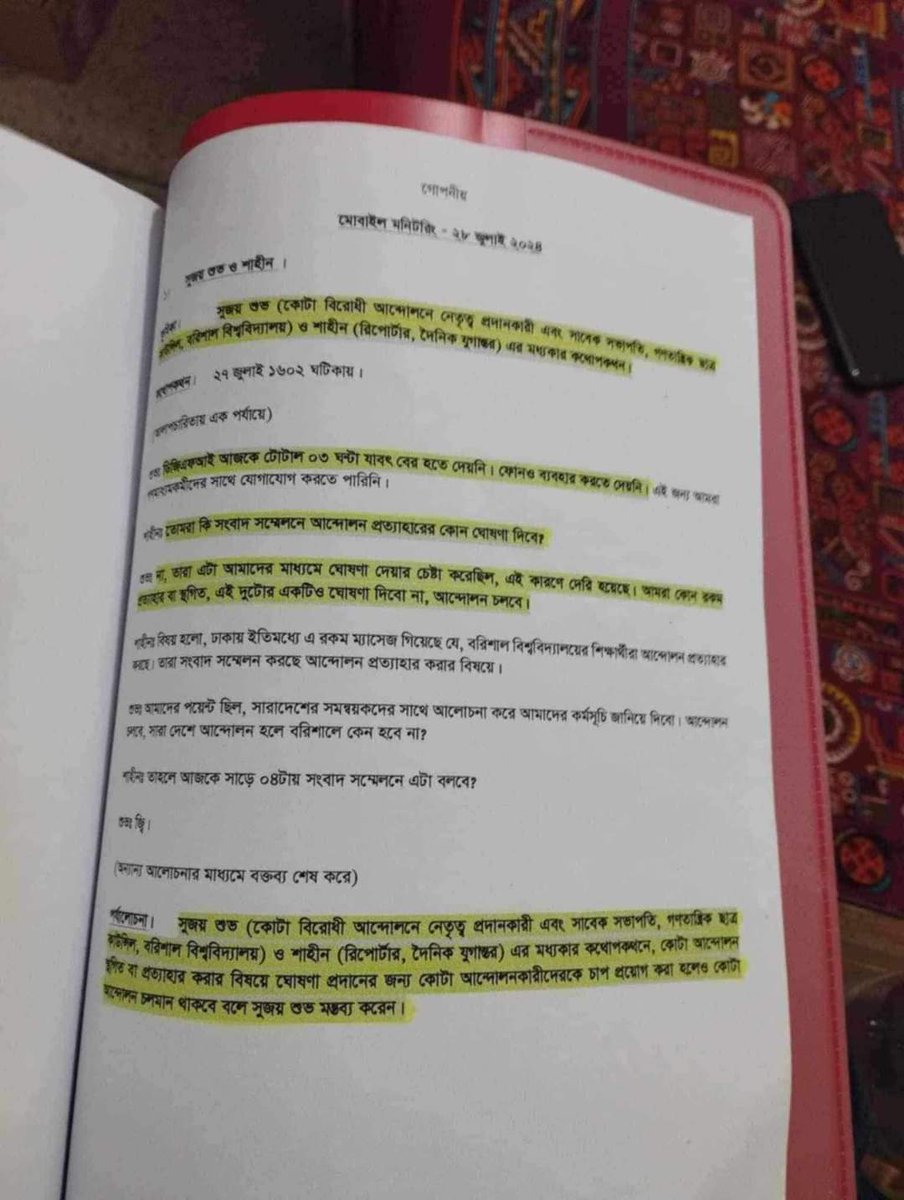 গোপনীয়
মোবাইল মনিটরিং - ২৮ জুলাই ২০২৪
১। সুজয় শুভ ও শাহীন ।
সুজয় শুভ (কোটা বিরোধী আন্দোলনে নেতৃত্ব প্রদানকারী এবং সাবেক সভাপতি, গণতান্ত্রিক ছাত্র
কাউন্সিল, বরিশাল বিশ্ববিদ্যালয়) ও শাহীন (রিপোর্টার, দৈনিক যুগান্তর) এর মধ্যকার কথোপকথন।
কথোপকথন। ২৭ জুলাই ১৬০২ ঘটিকায়।
(আলাপচারিতায় এক পর্যায়ে)
শুভঃ ডিজিএফআই আজকে টোটাল ০৩ ঘন্টা যাবৎ বের হতে দেয়নি। ফোনও ব্যবহার করতে দেয়নি। এই জন্য আমরা
গণমাধ্যমকর্মীদের সাথে যোগাযোগ করতে পারিনি।
শাহীনঃ তোমরা কি সংবাদ সম্মেলনে আন্দোলন প্রত্যাহারের কোন ঘোষণা দিবে?
শুভঃ না, তারা এটা আমাদের মাধ্যমে ঘোষণা দেয়ার চেষ্টা করেছিল, এই কারণে দেরি হয়েছে। আমরা কোন রকম
প্রত্যাহার বা স্থগিত, এই দুটোর একটিও ঘোষণা দিবো না, আন্দোলন চলবে।
শাহীনঃ বিষয় হলো, ঢাকায় ইতিমধ্যে এ রকম ম্যাসেজ গিয়েছে যে, বরিশাল বিশ্ববিদ্যালয়ের শিক্ষার্থীরা আন্দোলন প্রত্যাহার
করছে। তারা সংবাদ সম্মেলন করছে আন্দোলন প্রত্যাহার করার বিষয়ে।
শুভঃ আমাদের পয়েন্ট ছিল, সারাদেশের সমন্বয়কদের সাথে আলোচনা করে আমাদের কর্মসূচি জানিয়ে দিবো। আন্দোলন
চলবে, সারা দেশে আন্দোলন হলে বরিশালে কেন হবে না?
শাহীনঃ তাহলে আজকে সাড়ে ০৪টায় সংবাদ সম্মেলনে এটা বলবে?
শুভঃ জ্বি।
(অন্যান্য আলোচনার মাধ্যমে বক্তব্য শেষ করে)
পর্যালোচনা। সুজয় শুভ (কোটা বিরোধী আন্দোলনে নেতৃত্ব প্রদানকারী এবং সাবেক সভাপতি, গণতান্ত্রিক ছাত্র
কাউন্সিল, বরিশাল বিশ্ববিদ্যালয়) ও শাহীন (রিপোর্টার, দৈনিক যুগান্তর) এর মধ্যকার কথোপকথনে, কোটা আন্দোলন
স্থগিত বা প্রত্যাহার করার বিষয়ে ঘোষণা প্রদানের জন্য কোটা আন্দোলনকারীদেরকে চাপ প্রয়োগ করা হলেও কোটা
আন্দোলন চলমান থাকবে বলে সুজয় শুভ মন্তব্য করেন।